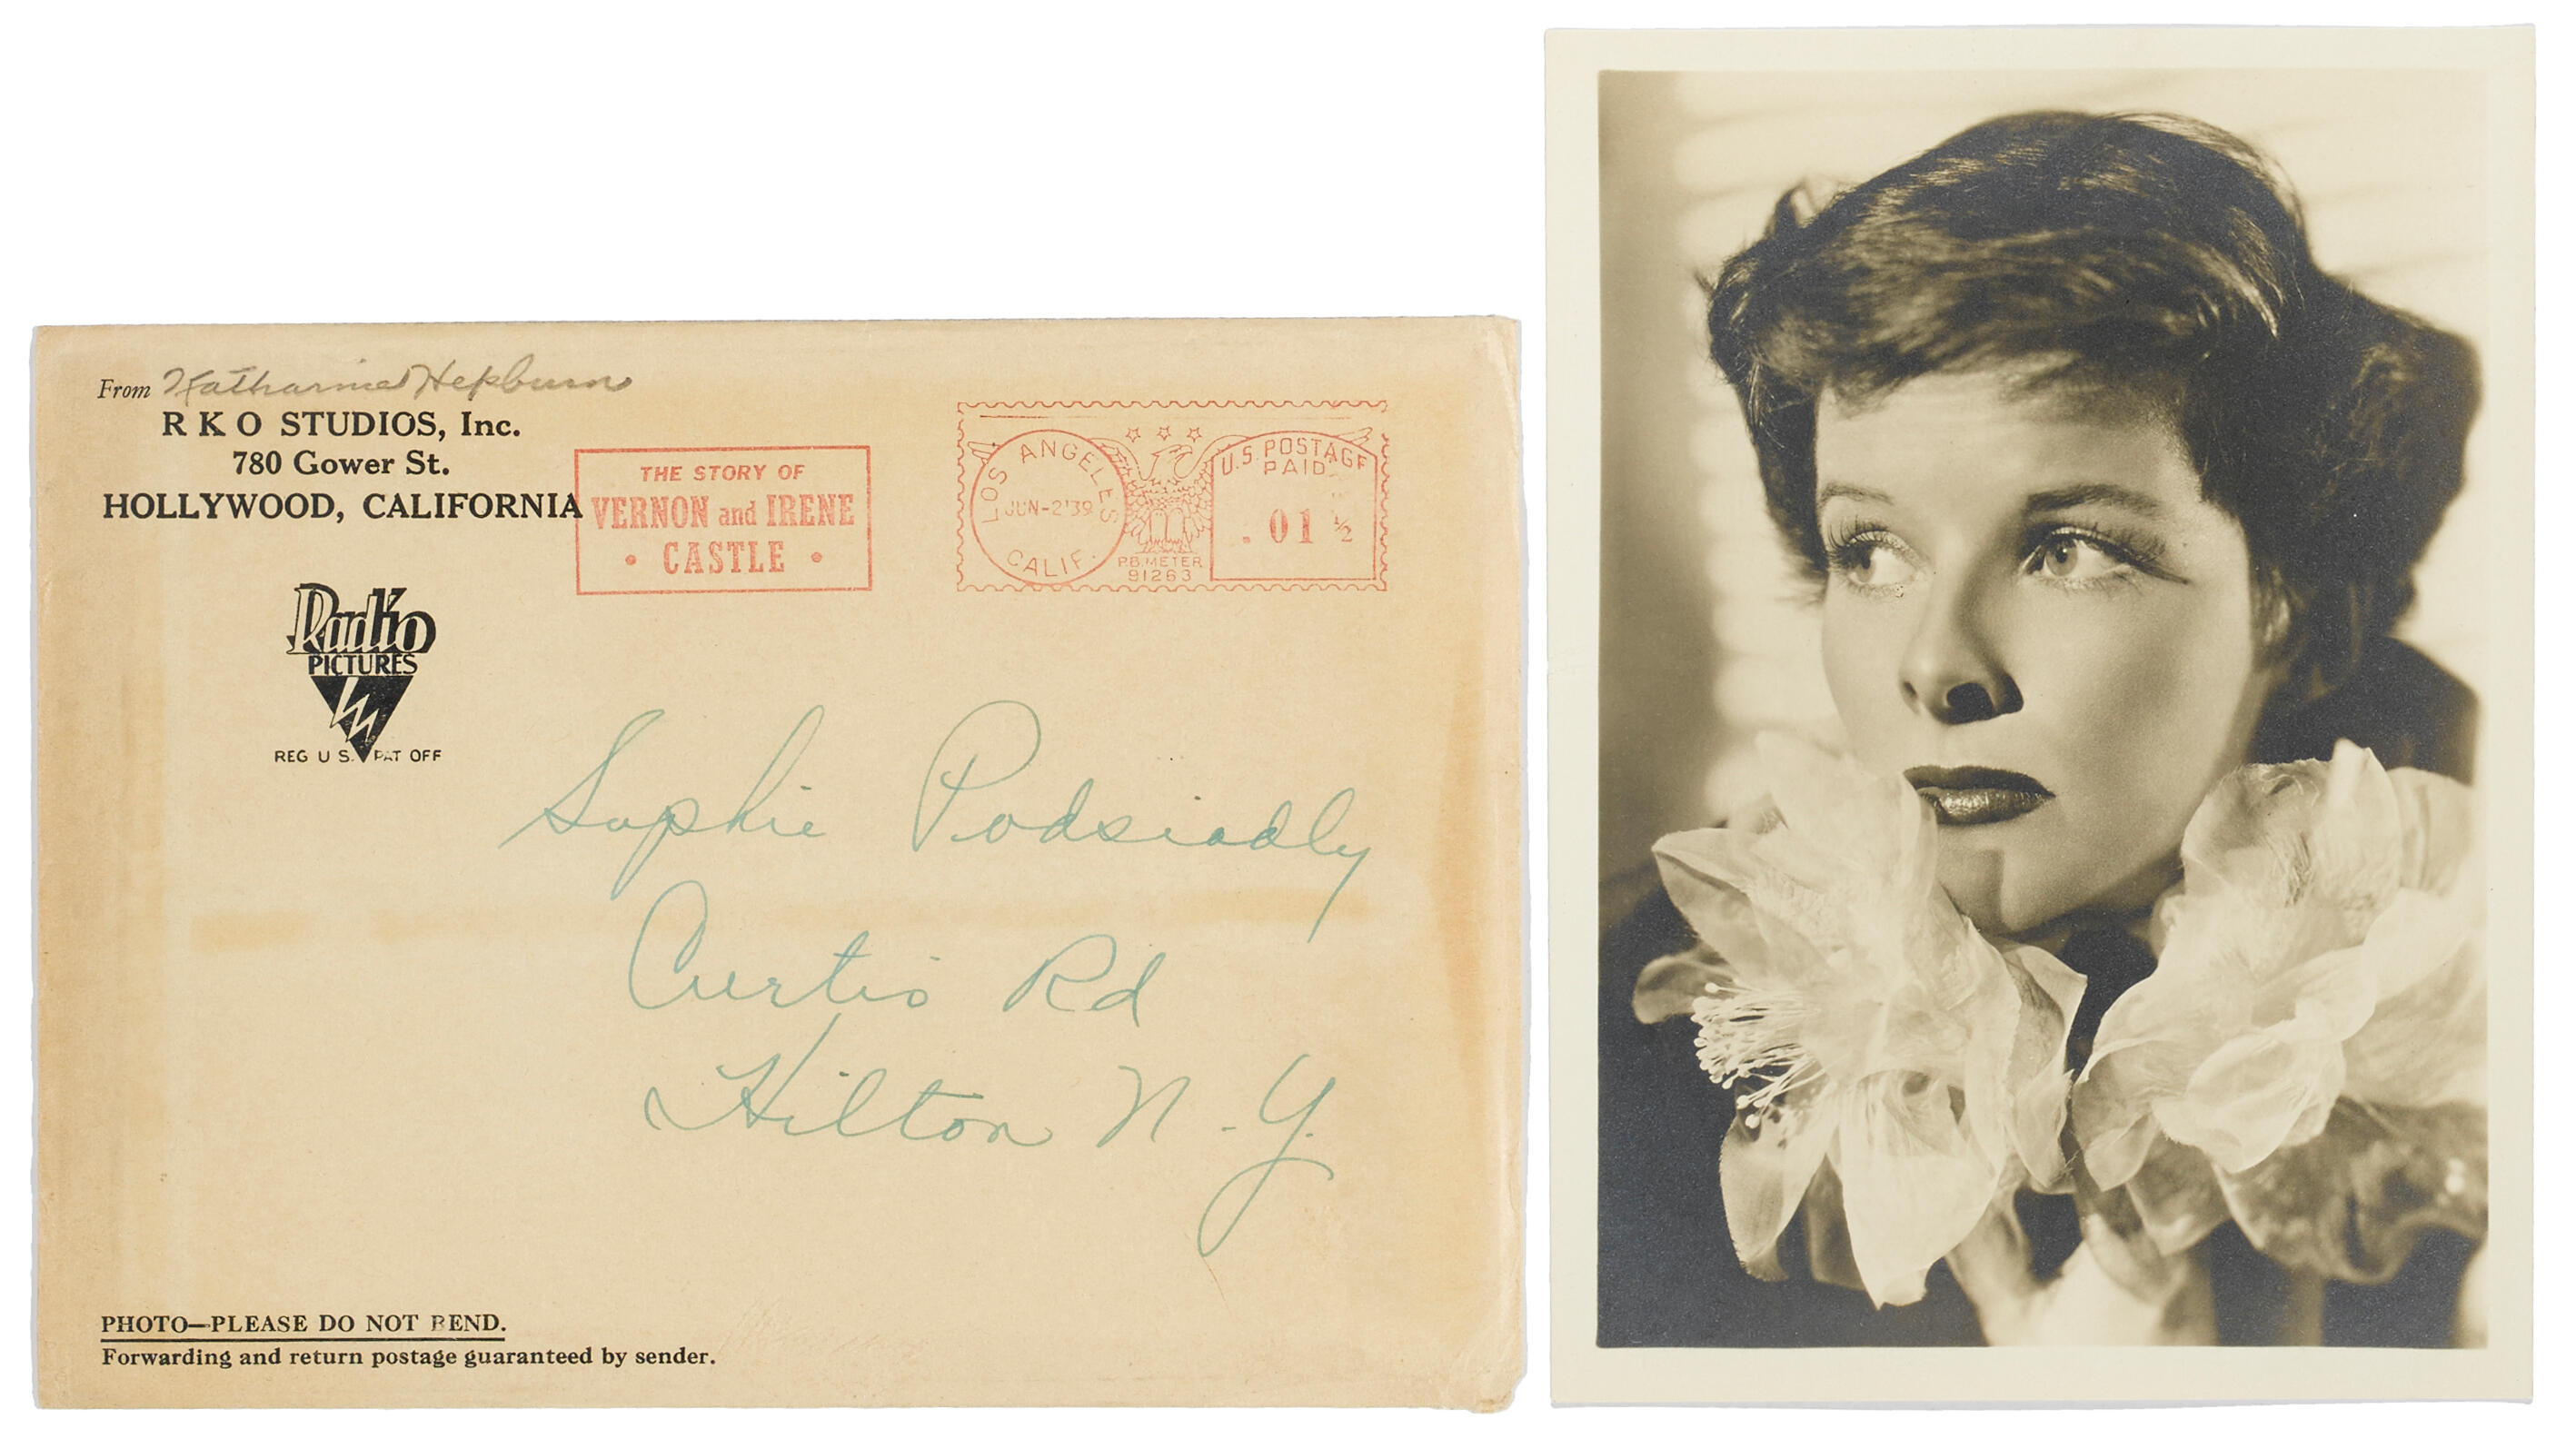 From Katharine Hepburn
R K O STUDIOS, Inc.
780 Gower St.
HOLLYWOOD, CALIFORNIA
THE STORY OF
VERNON and IRENE
• CASTLE •
LOS ANGELES
JUN-2'39
CALIF.
P.B. METER
91263
U.S. POSTAGE
PAID
.01 ½
Radio
PICTURES
REG U S. PAT OFF
Sophie Podsiadly
Curtis Rd
Hilton N.Y.
PHOTO—PLEASE DO NOT BEND.
Forwarding and return postage guaranteed by sender.